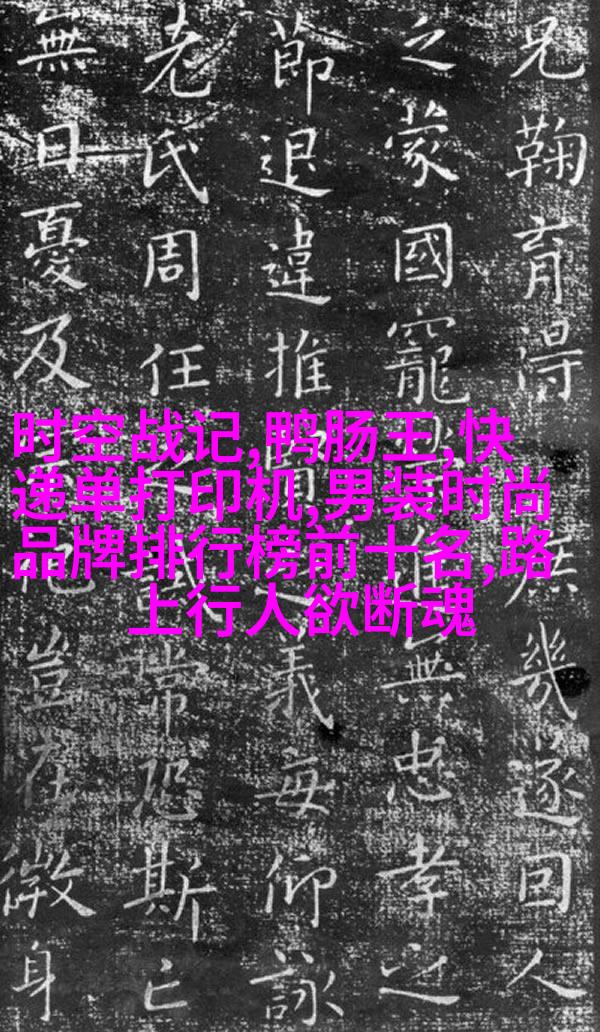 兄鞠育得庶幾遂回人
之蒙國寵進無忠孝之
節退違推賢義每仰詠
老氏周任誡常恐斯亡
無日憂及祀豈在微身
时空战记,鸭肠王,快
递单打印机,男装时尚
品牌排行榜前十名,路
上行人欲断魂